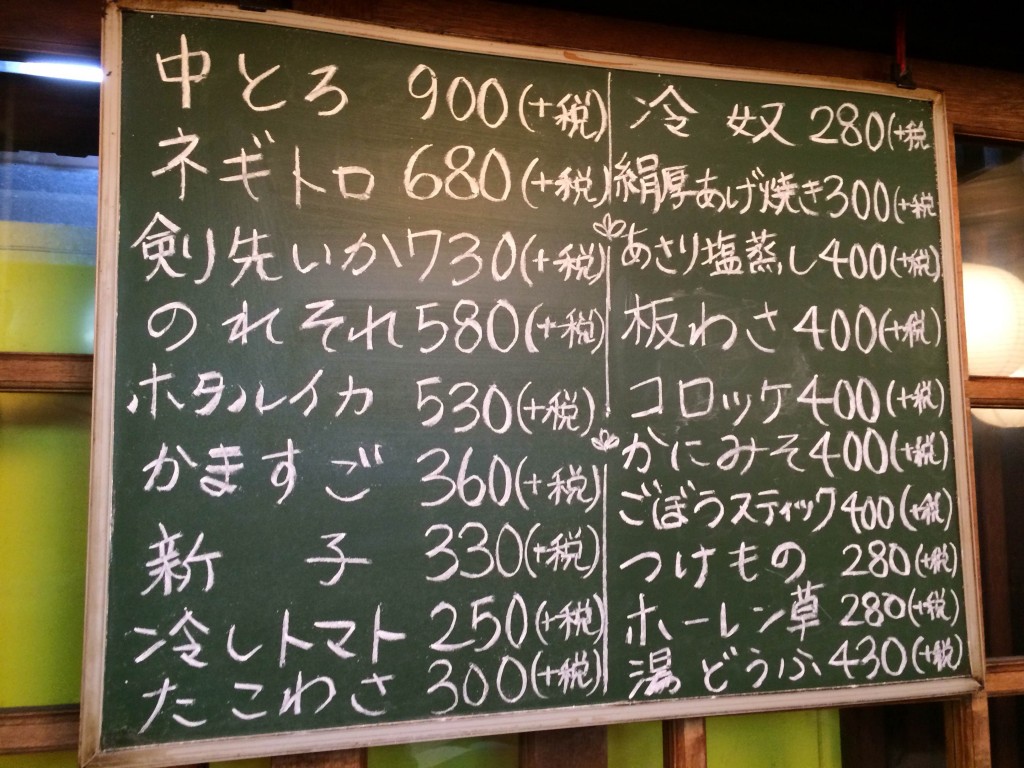 中とろ 900(+税)
ネギトロ 680(+税)
剣先いか 730(+税)
のれそれ 580(+税)
ホタルイカ 530(+税)
かますご 360(+税)
新子 330(+税)
冷しトマト 250(+税)
たこわさ 300(+税)
冷奴 280(+税
絹厚あげ焼き 300(+税
あさり塩蒸し 400(+税)
板わさ 400(+税)
コロッケ 400(+税)
かにみそ 400(+税)
ごぼうスティック 400(+税)
つけもの 280(+税)
ホーレン草 280(+税)
湯どうふ 430(+税)